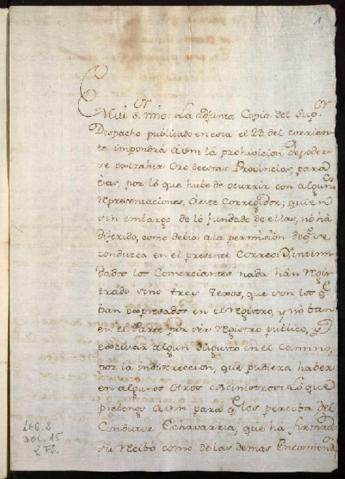 1
Mui S.or mio: La adjunta Copia del Sup.or
Despacho publicado en esta el 23 del corrien-
te impondrá a vm la prohivicion de poder-
se extraher Oro de estas Provincias, para
esas, por lo que hube de ocurrir con algunas
representaciones, a este Corregidor; quien
sin embargo de lo fundado de ellas, no há
diferido, como debia a la permision de q.e se
conduzca en el presente Correo: Intimi-
dados los Comerciantes nada han regis-
trado sino tres Texos, que son los q.e
ban expresados en el registro, y no ban
en el Parte por ser registro publico, y
escusar algun disgusto en el camino,
por la indiscrecion, que pudiera haber
en algunos Otros Ministros: Lo que
prebengo a vm para q.e los perciba del
Conductor Echavarria, que ha firmado
su recibo como de las demas Encomiend.s
Leg. 2
Doc. 15
2 Fs.